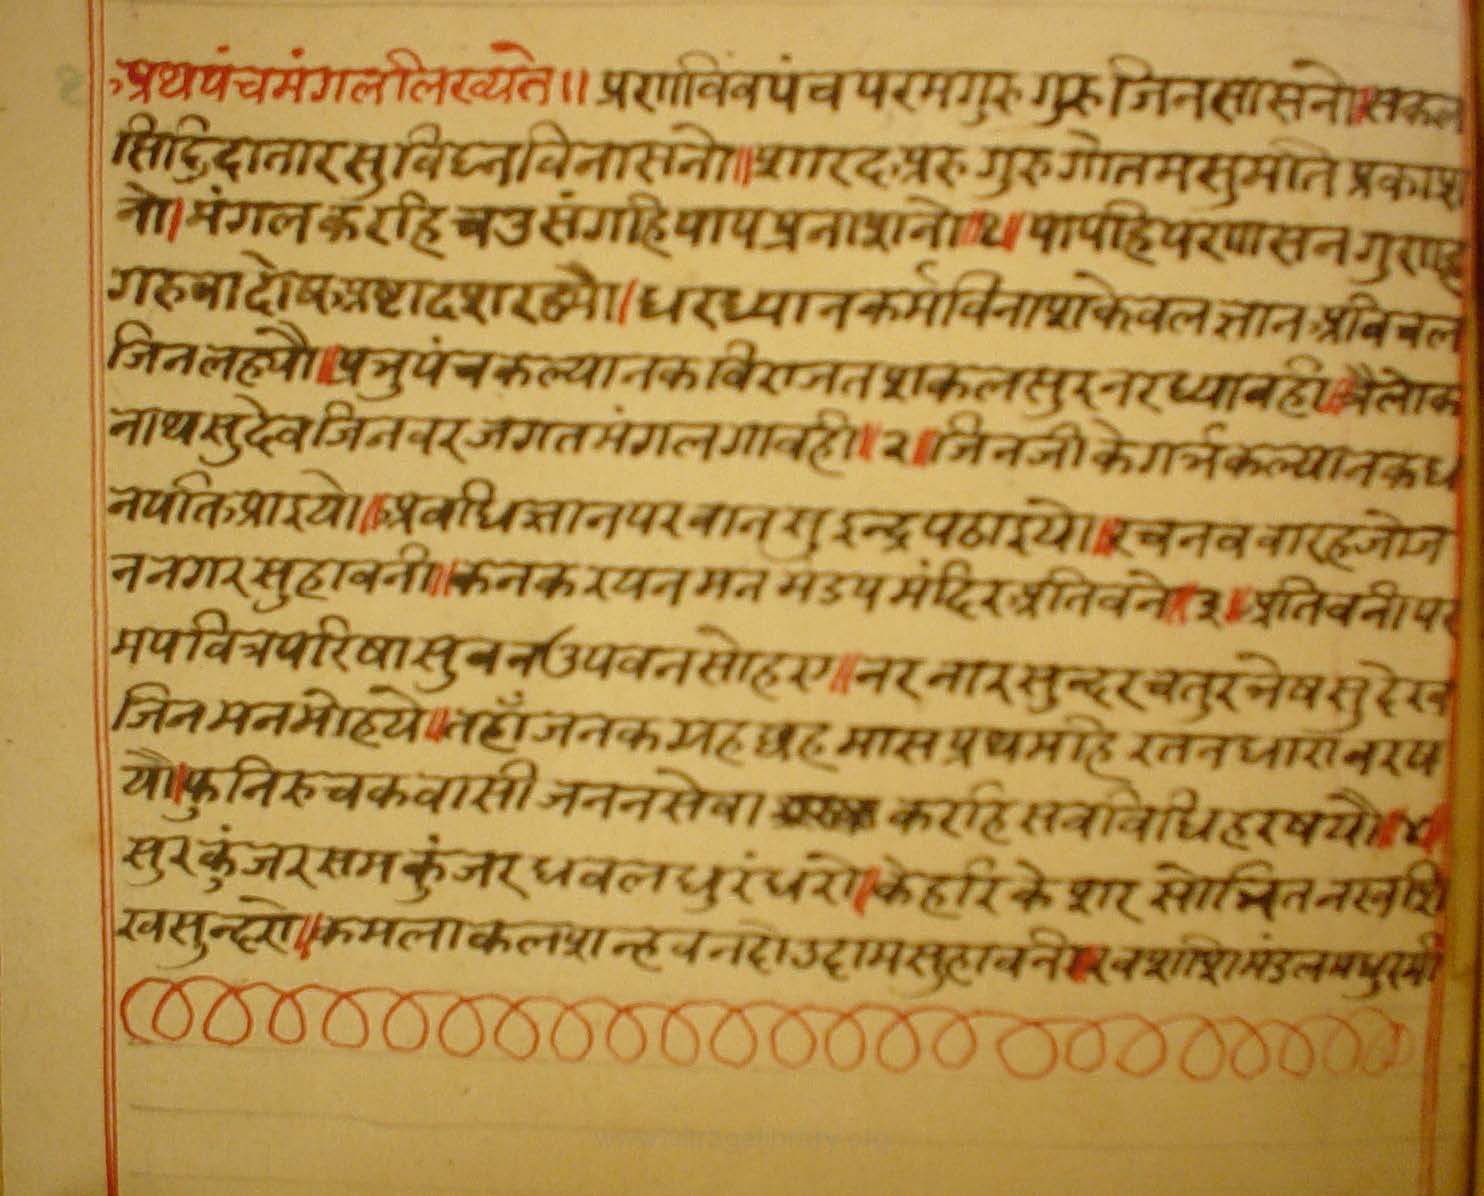 अथपंचमंगललिख्यते॥ प्रणविवपंचपरमगुरु गुरू जिनसासनो॥सकल
सिद्धिदातारसुविघ्नविनासनो॥शारदअरु गुरुगोतमसुमति प्रकाश
नो।मंगलकरहि चउसंगहिपापप्रनाशनो॥१॥पापहिपरणासनगुराणह
गरुवादोषअष्टादशरह्यौ।धरध्यानकर्मविनाशकेवलज्ञानअविचल
जिनलह्यौ॥प्रभुपंचकल्यानकविराजतशकलसुरनरध्यावही॥त्रैलोक
नाथसुदेवजिनवरजगतमंगलगावही॥२॥जिनजीकेगर्भकल्यानकध
नपतिआइयो॥अवधिज्ञानपरवानसुइन्द्रपठाइयो॥रचनववारहजोज
ननगरसुहावनी॥कनकरयनमनमंडपमंदिरअतिवने॥३॥अतिवनीपर
मपवित्रपरिषासुवनउपवनसोहए॥नरनारसुन्दरचतुरभेषसुदेख
जिनमनमोहये॥तहाँजनकग्रहछहमासप्रथमहि रतनधारावरष
यौ।फुनिरुचकवासीजननसेवा करहिसवविधिहरषयौ॥४॥
सुरकुंजरसमकुंजरधवलधुरंधरो।केहरिकेशर सोभितनखशि
खसुन्दरो॥कमलाकलशन्हवनदोउदामसुहावनी॥रवशशिमंडलमधुरमी